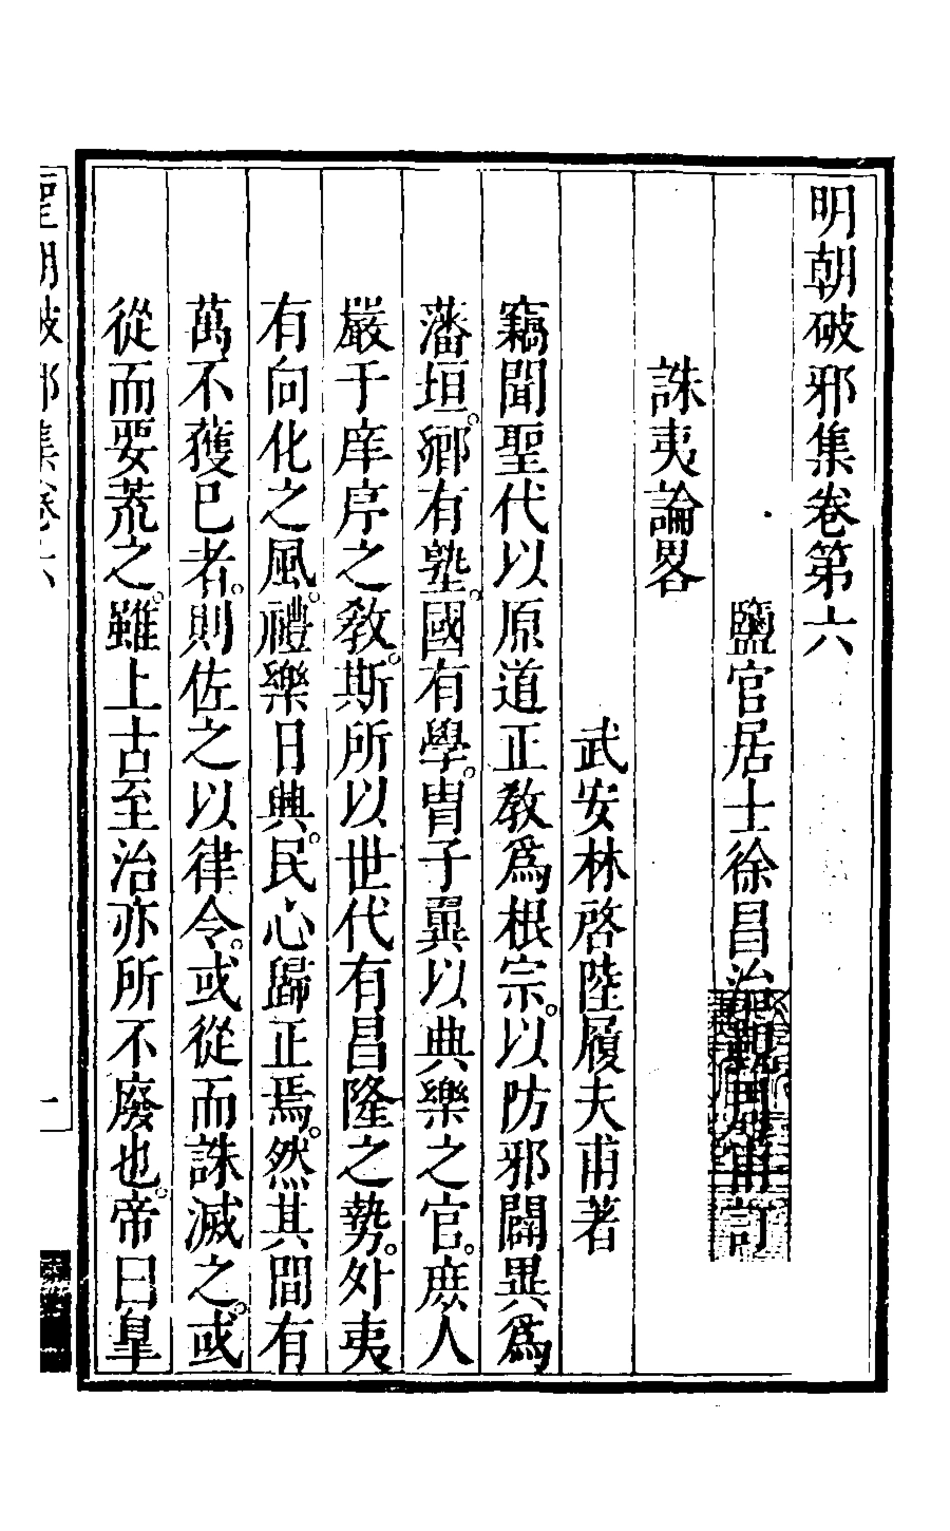 明朝破邪集卷第六
鹽官居士徐昌治覲周甫訂
誅夷論畧
武安林啓陸履夫甫著
竊聞聖代以原道正教爲根宗。以防邪闢異爲
藩垣。鄉有塾。國有學。胄子異以典樂之官。庶人
嚴于庠序之教。斯所以世代有昌隆之勢。外夷
有向化之風。禮樂日興。民心歸正焉。然其間有
萬不獲已者。則佐之以律令。或從而誅滅之。或
從而要荒之。雖上古至治亦所不廢也。帝曰皐
聖朝破邪集卷六
一